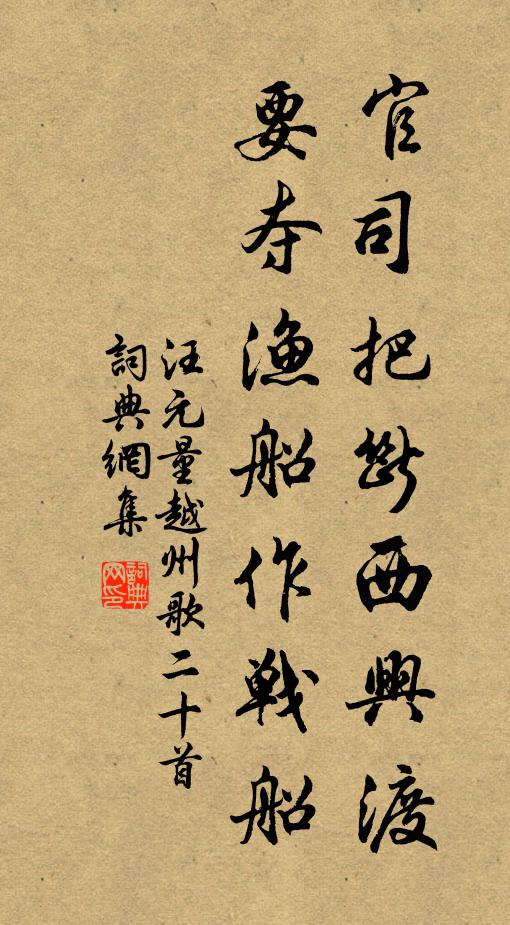 官司把斷西興渡
要夺漁船作戰船
汪元量越州歌二十首
詞典網集
詞典
网印